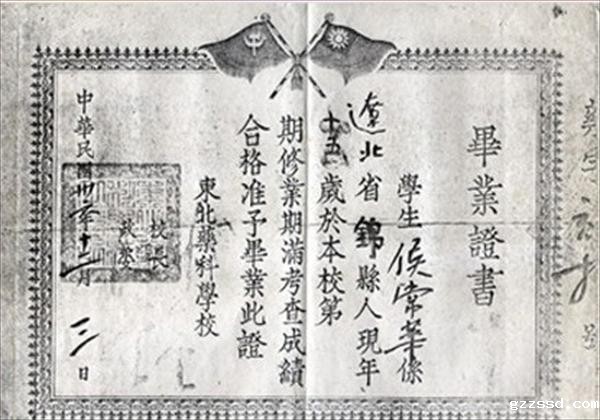 畢業證書
學生侯常華係
遼北省錦縣人現年
歲於本校第
期修業期滿考查成績
合格准予畢業此證
東北藥科學校
校長
中華民國卅年十二月三日
gzzssd.com